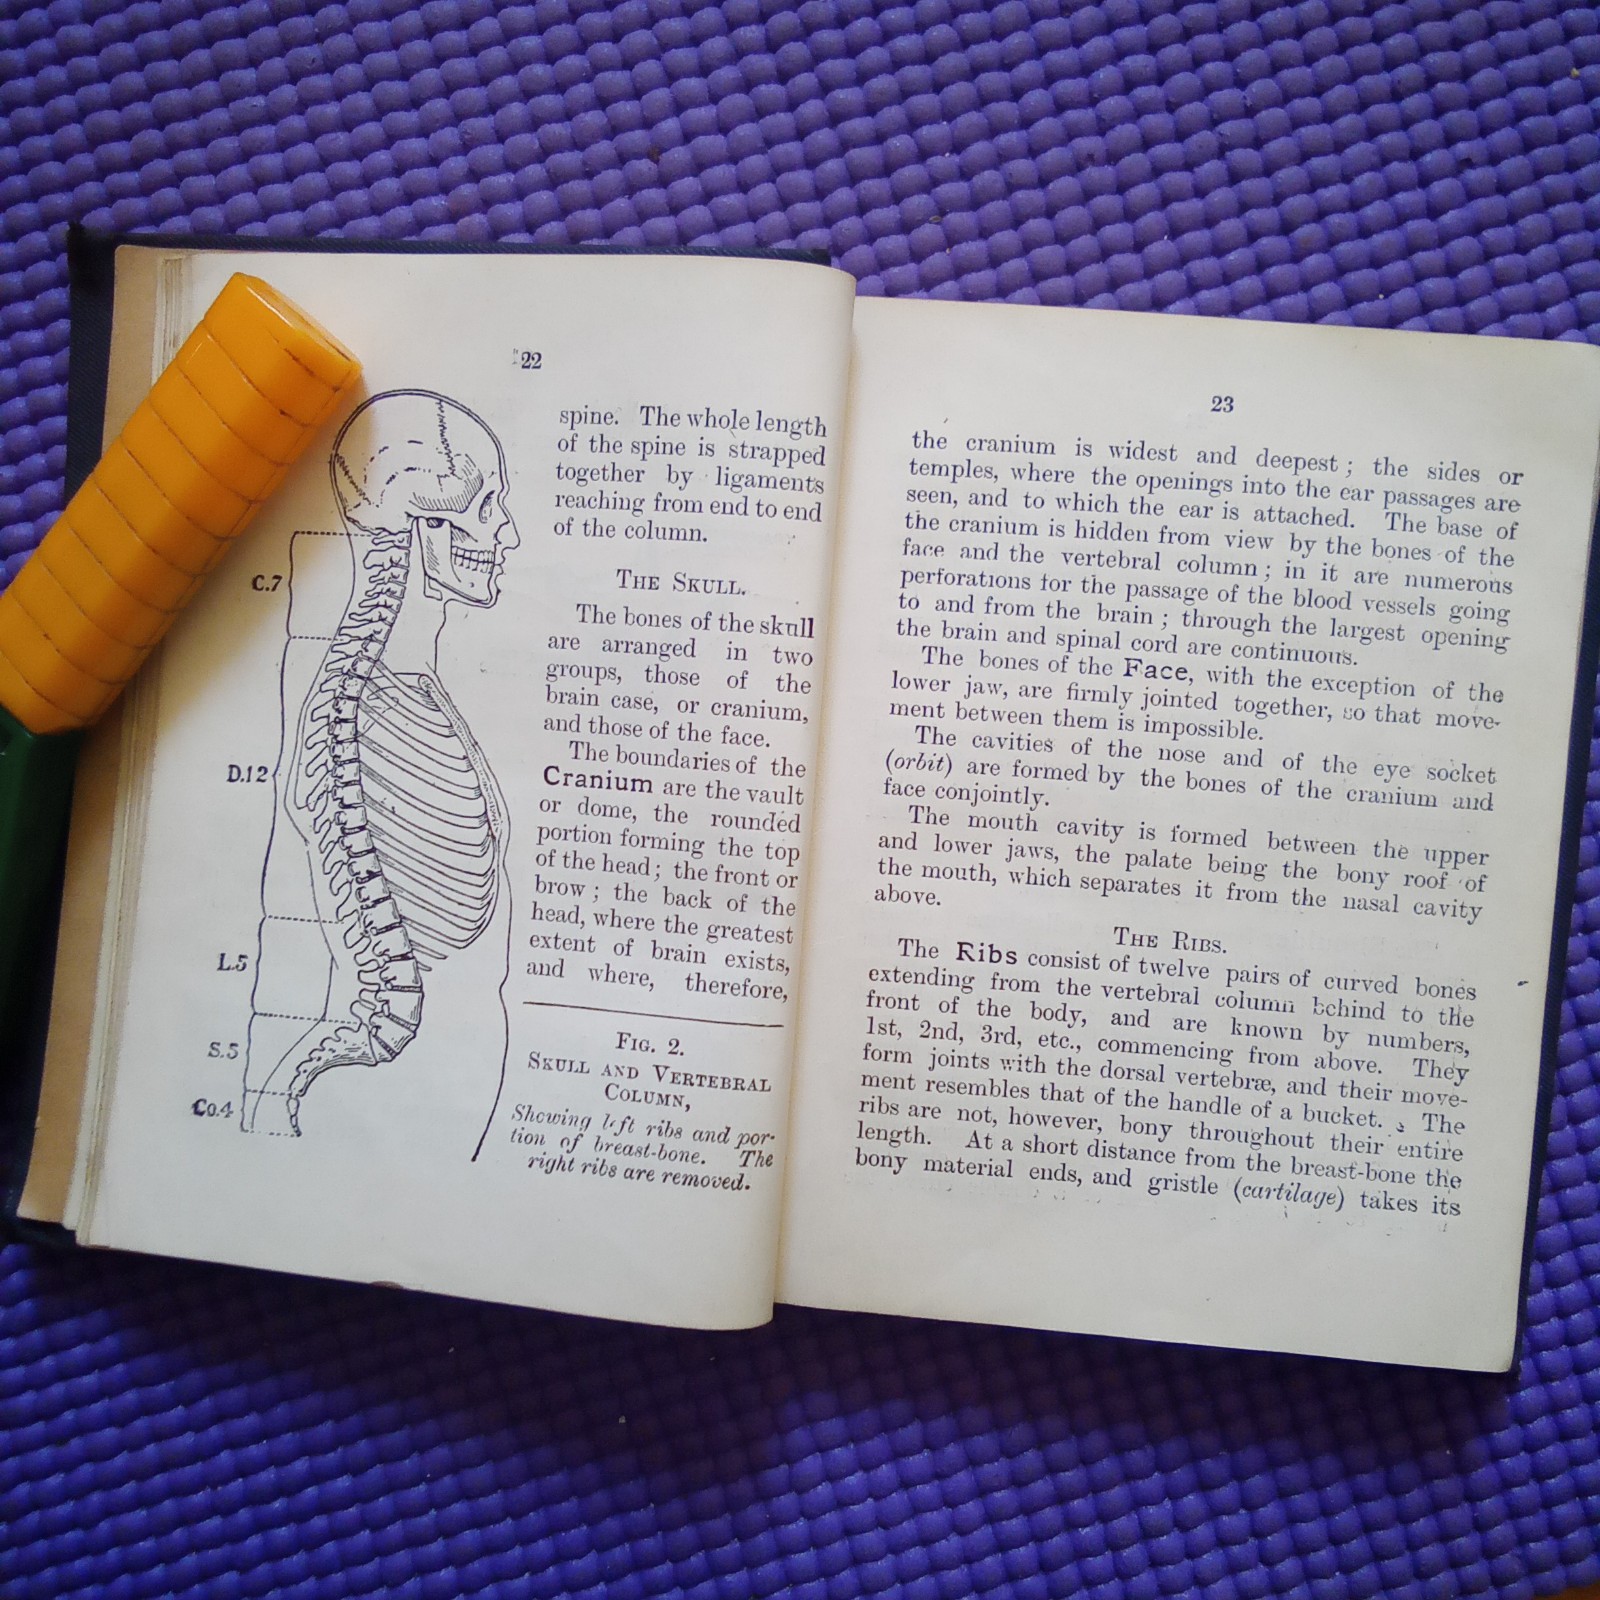 22
C.7
D.12
L.5
S.5
Co.4
spine. The whole length
of the spine is strapped
together by ligaments
reaching from end to end
of the column.
THE SKULL.
The bones of the skull
are arranged in two
groups, those of the
brain case, or cranium,
and those of the face.
The boundaries of the
Cranium are the vault
or dome, the rounded
portion forming the top
of the head; the front or
brow; the back of the
head, where the greatest
extent of brain exists,
and where, therefore,
FIG. 2.
SKULL AND VERTEBRAL
COLUMN,
Showing left ribs and por-
tion of breast-bone. The
right ribs are removed.
23
the cranium is widest and deepest; the sides or
temples, where the openings into the ear passages are
seen, and to which the ear is attached. The base of
the cranium is hidden from view by the bones of the
face and the vertebral column; in it are numerous
perforations for the passage of the blood vessels going
to and from the brain; through the largest opening
the brain and spinal cord are continuous.
The bones of the Face, with the exception of the
lower jaw, are firmly jointed together, so that move-
ment between them is impossible.
The cavities of the nose and of the eye socket
(orbit) are formed by the bones of the cranium and
face conjointly.
The mouth cavity is formed between the upper
and lower jaws, the palate being the bony roof of
the mouth, which separates it from the nasal cavity
above.
THE RIBS.
The Ribs consist of twelve pairs of curved bones
extending from the vertebral column behind to the
front of the body, and are known by numbers,
1st, 2nd, 3rd, etc., commencing from above. They
form joints with the dorsal vertebræ, and their move-
ment resembles that of the handle of a bucket. The
ribs are not, however, bony throughout their entire
length. At a short distance from the breast-bone the
bony material ends, and gristle (cartilage) takes its